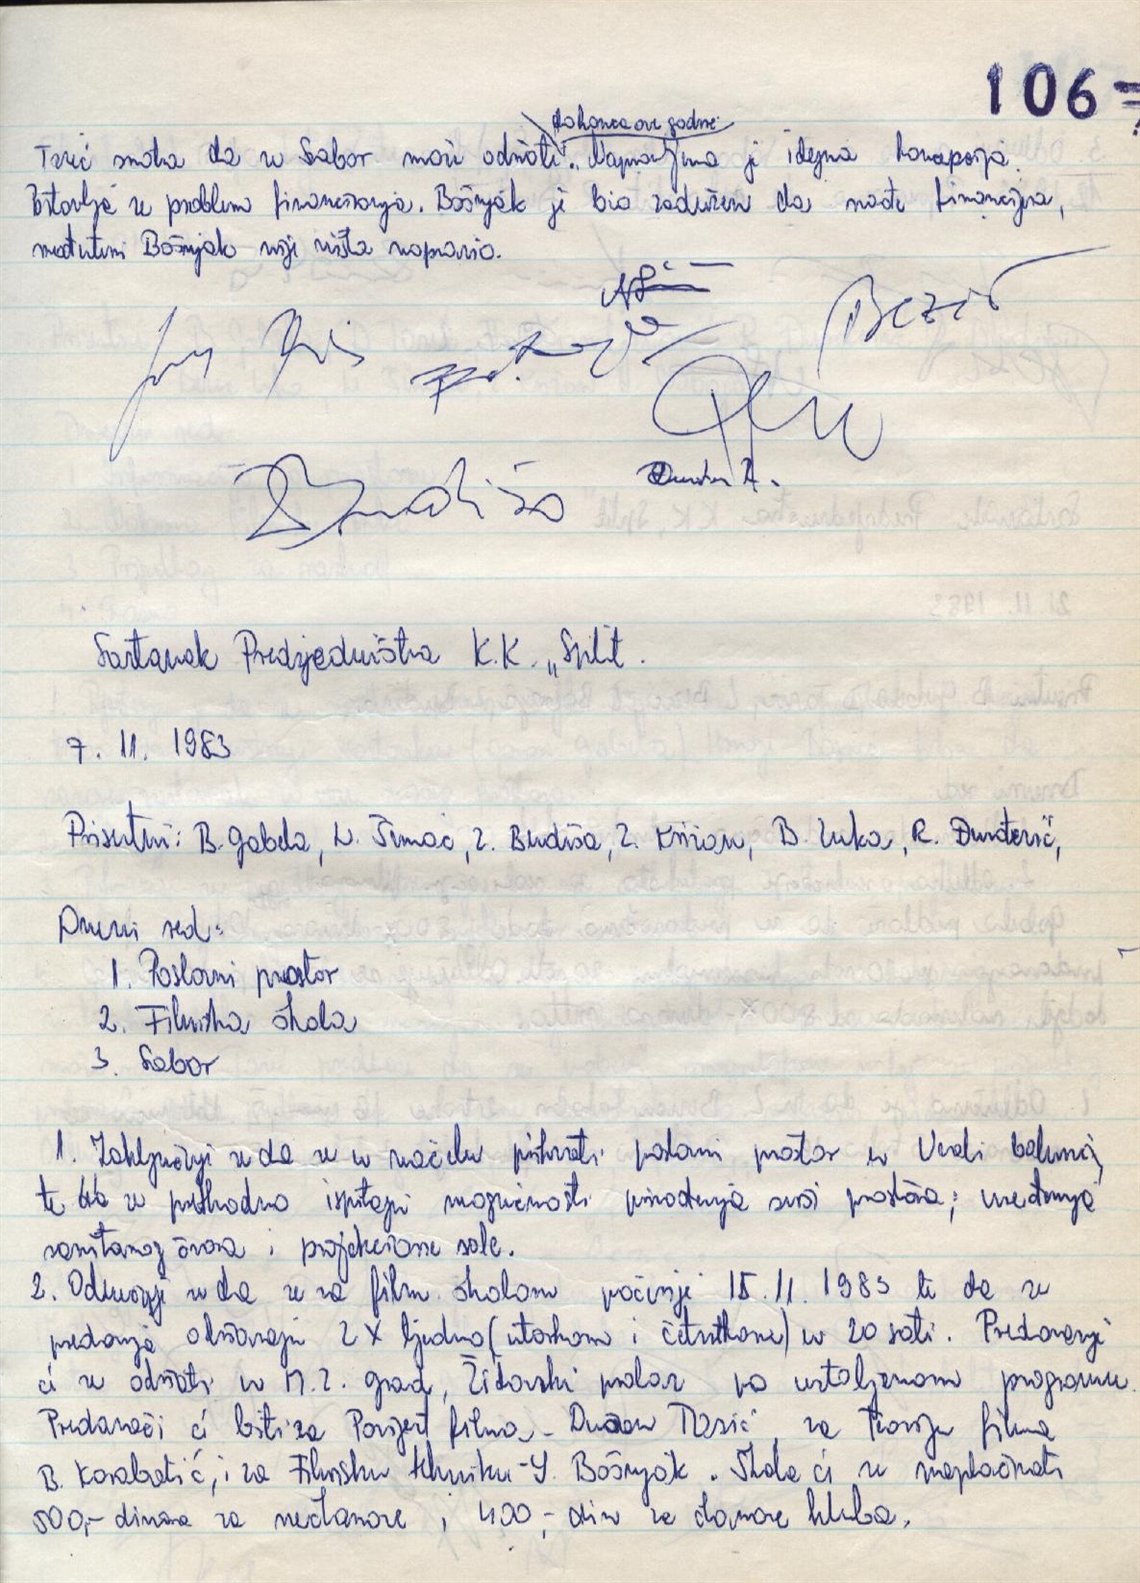 106
do konca ove godine
Tezić smatra da se Sabor može održati. Napravljena je idejna koncepcija.
Postavlja se problem financiranja. Bošnjak je bio zadužen da nađe financijera,
međutim Bošnjak nije ništa napravio.
Bezić
Z. Budiša
Đunđer R.
Sastanak Predsjedništva K.K. „Split.
7. 11. 1983
Prisutni: B. Gabela, N. Šimac, Z. Budiša, Z. Križan, B. Luka, R. Đunđerić,
Dnevni red:
1. Poslovni prostor
2. Filmska škola
3. Sabor
1. Zaključuje se da se u načelu prihvati poslovni prostor u
te da se prethodno ispitaju mogućnosti prostora; uređenja
sanitarnog čvora i projekcione sale.
2. Odlučuje se da se sa film. školom počinje 15. 11. 1983 te da se
predavanja održavaju 2 X tjedno (utorkom i četvrtkom) u 20 sati. Predavanja
će se održati u M.Z. Grad, Židovski prolaz po ustaljenom programu.
Predavači će biti za Povijest filma - Dušan Tezić, za Teoriju filma
B. Karabatić, i za Filmsku tehniku - Y. Bošnjak. Škola će se naplaćivati
500,- dinara za nečlanove i 400,- din za članove kluba.